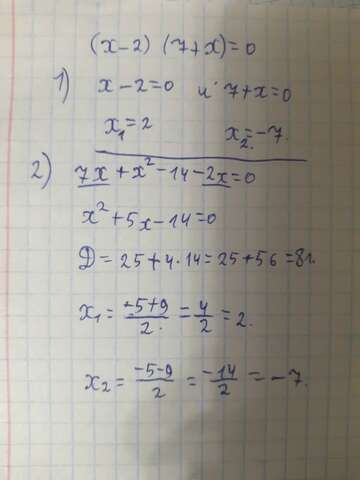 (x-2) (7+x)=0
1) x-2=0 и 7+x=0
x₁=2 x₂=-7.
2) 7x+x²-14-2x=0
x²+5x-14=0
Д=25+4·14=25+56=81.
x₁=\frac{-5+9}{2}=\frac{4}{2}=2.
x₂=\frac{-5-9}{2}=\frac{-14}{2}=-7.